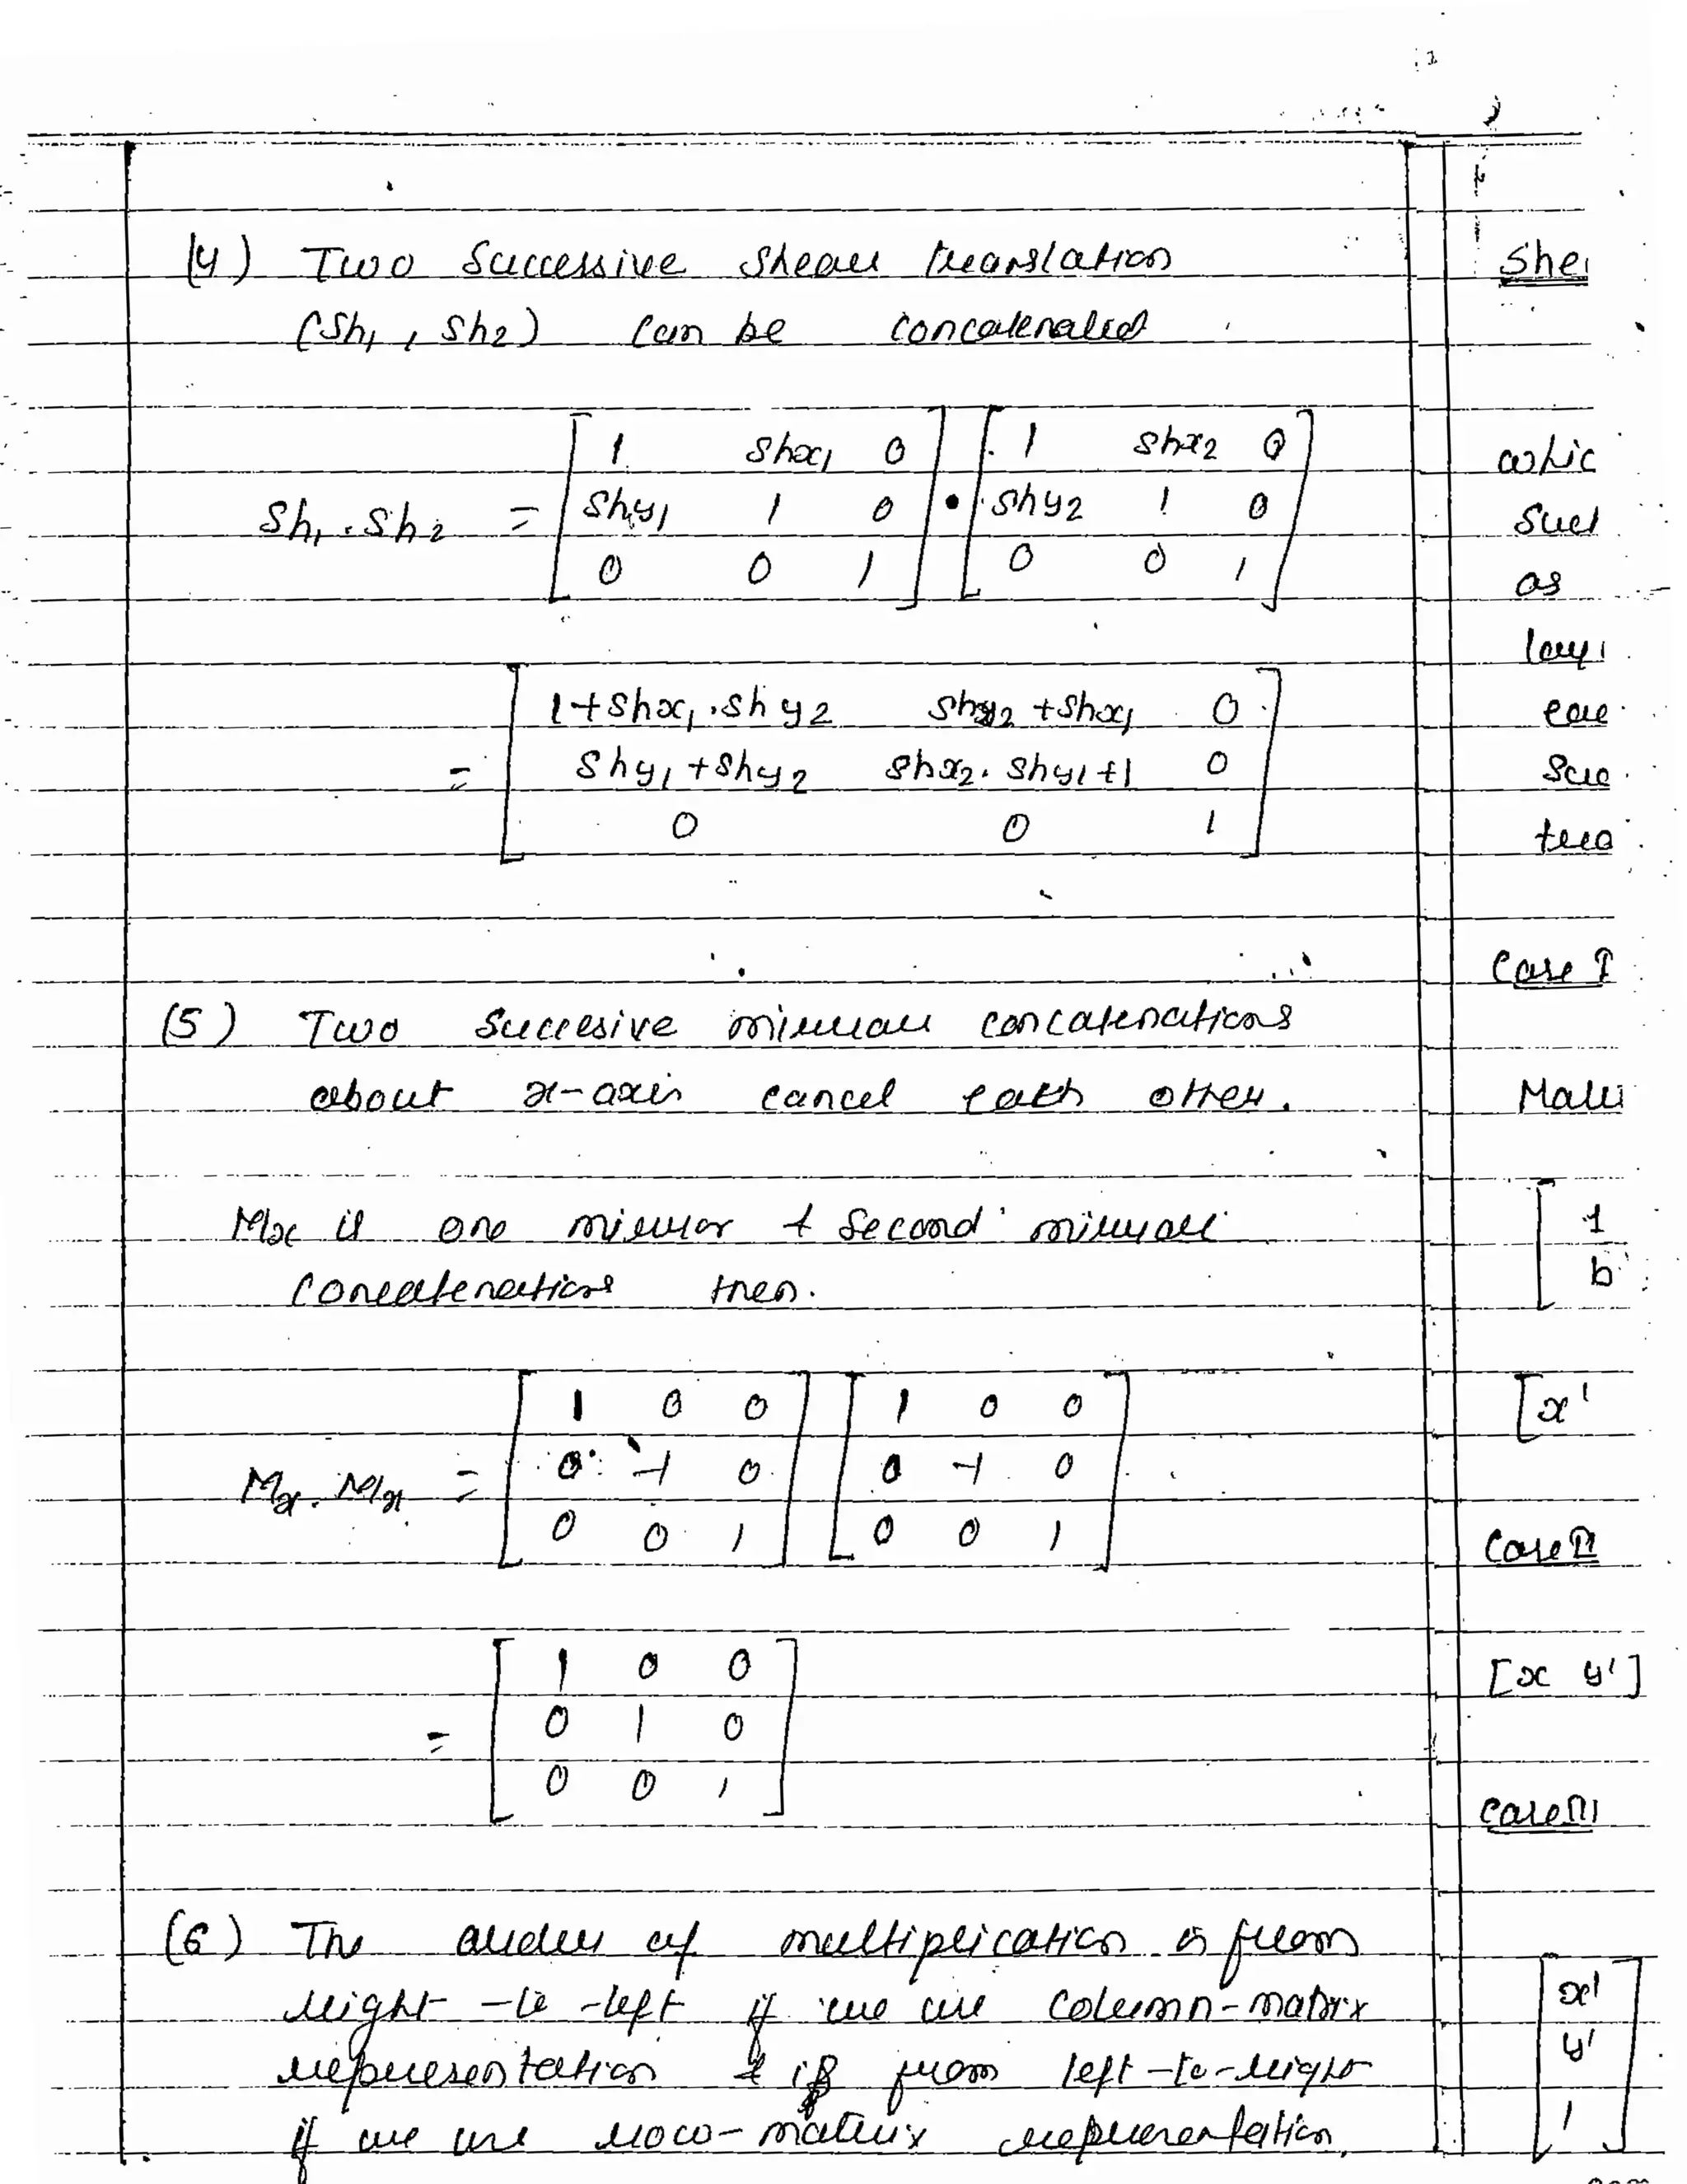 (4) Two Successive Shear translation
(Sh1, Sh2) can be concatenated
Sh1 . Sh2 = [ 1 shx1 0 ] . [ 1 shx2 0 ]
[ shy1 1 0 ] [ shy2 1 0 ]
[ 0 0 1 ] [ 0 0 1 ]
= [ 1+shx1.shy2 shx2+shx1 0 ]
[ shy1+shy2 shx2.shy1+1 0 ]
[ 0 0 1 ]
(5) Two Succesive mirror concatenations
about x-axis cancel each other.
Mx is one mirror & second mirror
concatenations then.
Mx . Mx = [ 1 0 0 ] [ 1 0 0 ]
[ 0 -1 0 ] [ 0 -1 0 ]
[ 0 0 1 ] [ 0 0 1 ]
= [ 1 0 0 ]
[ 0 1 0 ]
[ 0 0 1 ]
(6) The order of multiplication is from
right-to-left if we use column-matrix
representation & if from left-to-right
if we use row-matrix representation.
She
whic
suc
as
Case I
[ 1
b
[x'
Case II
[x y']
Case III
[ x' ]
[ y' ]
[ 1 ]